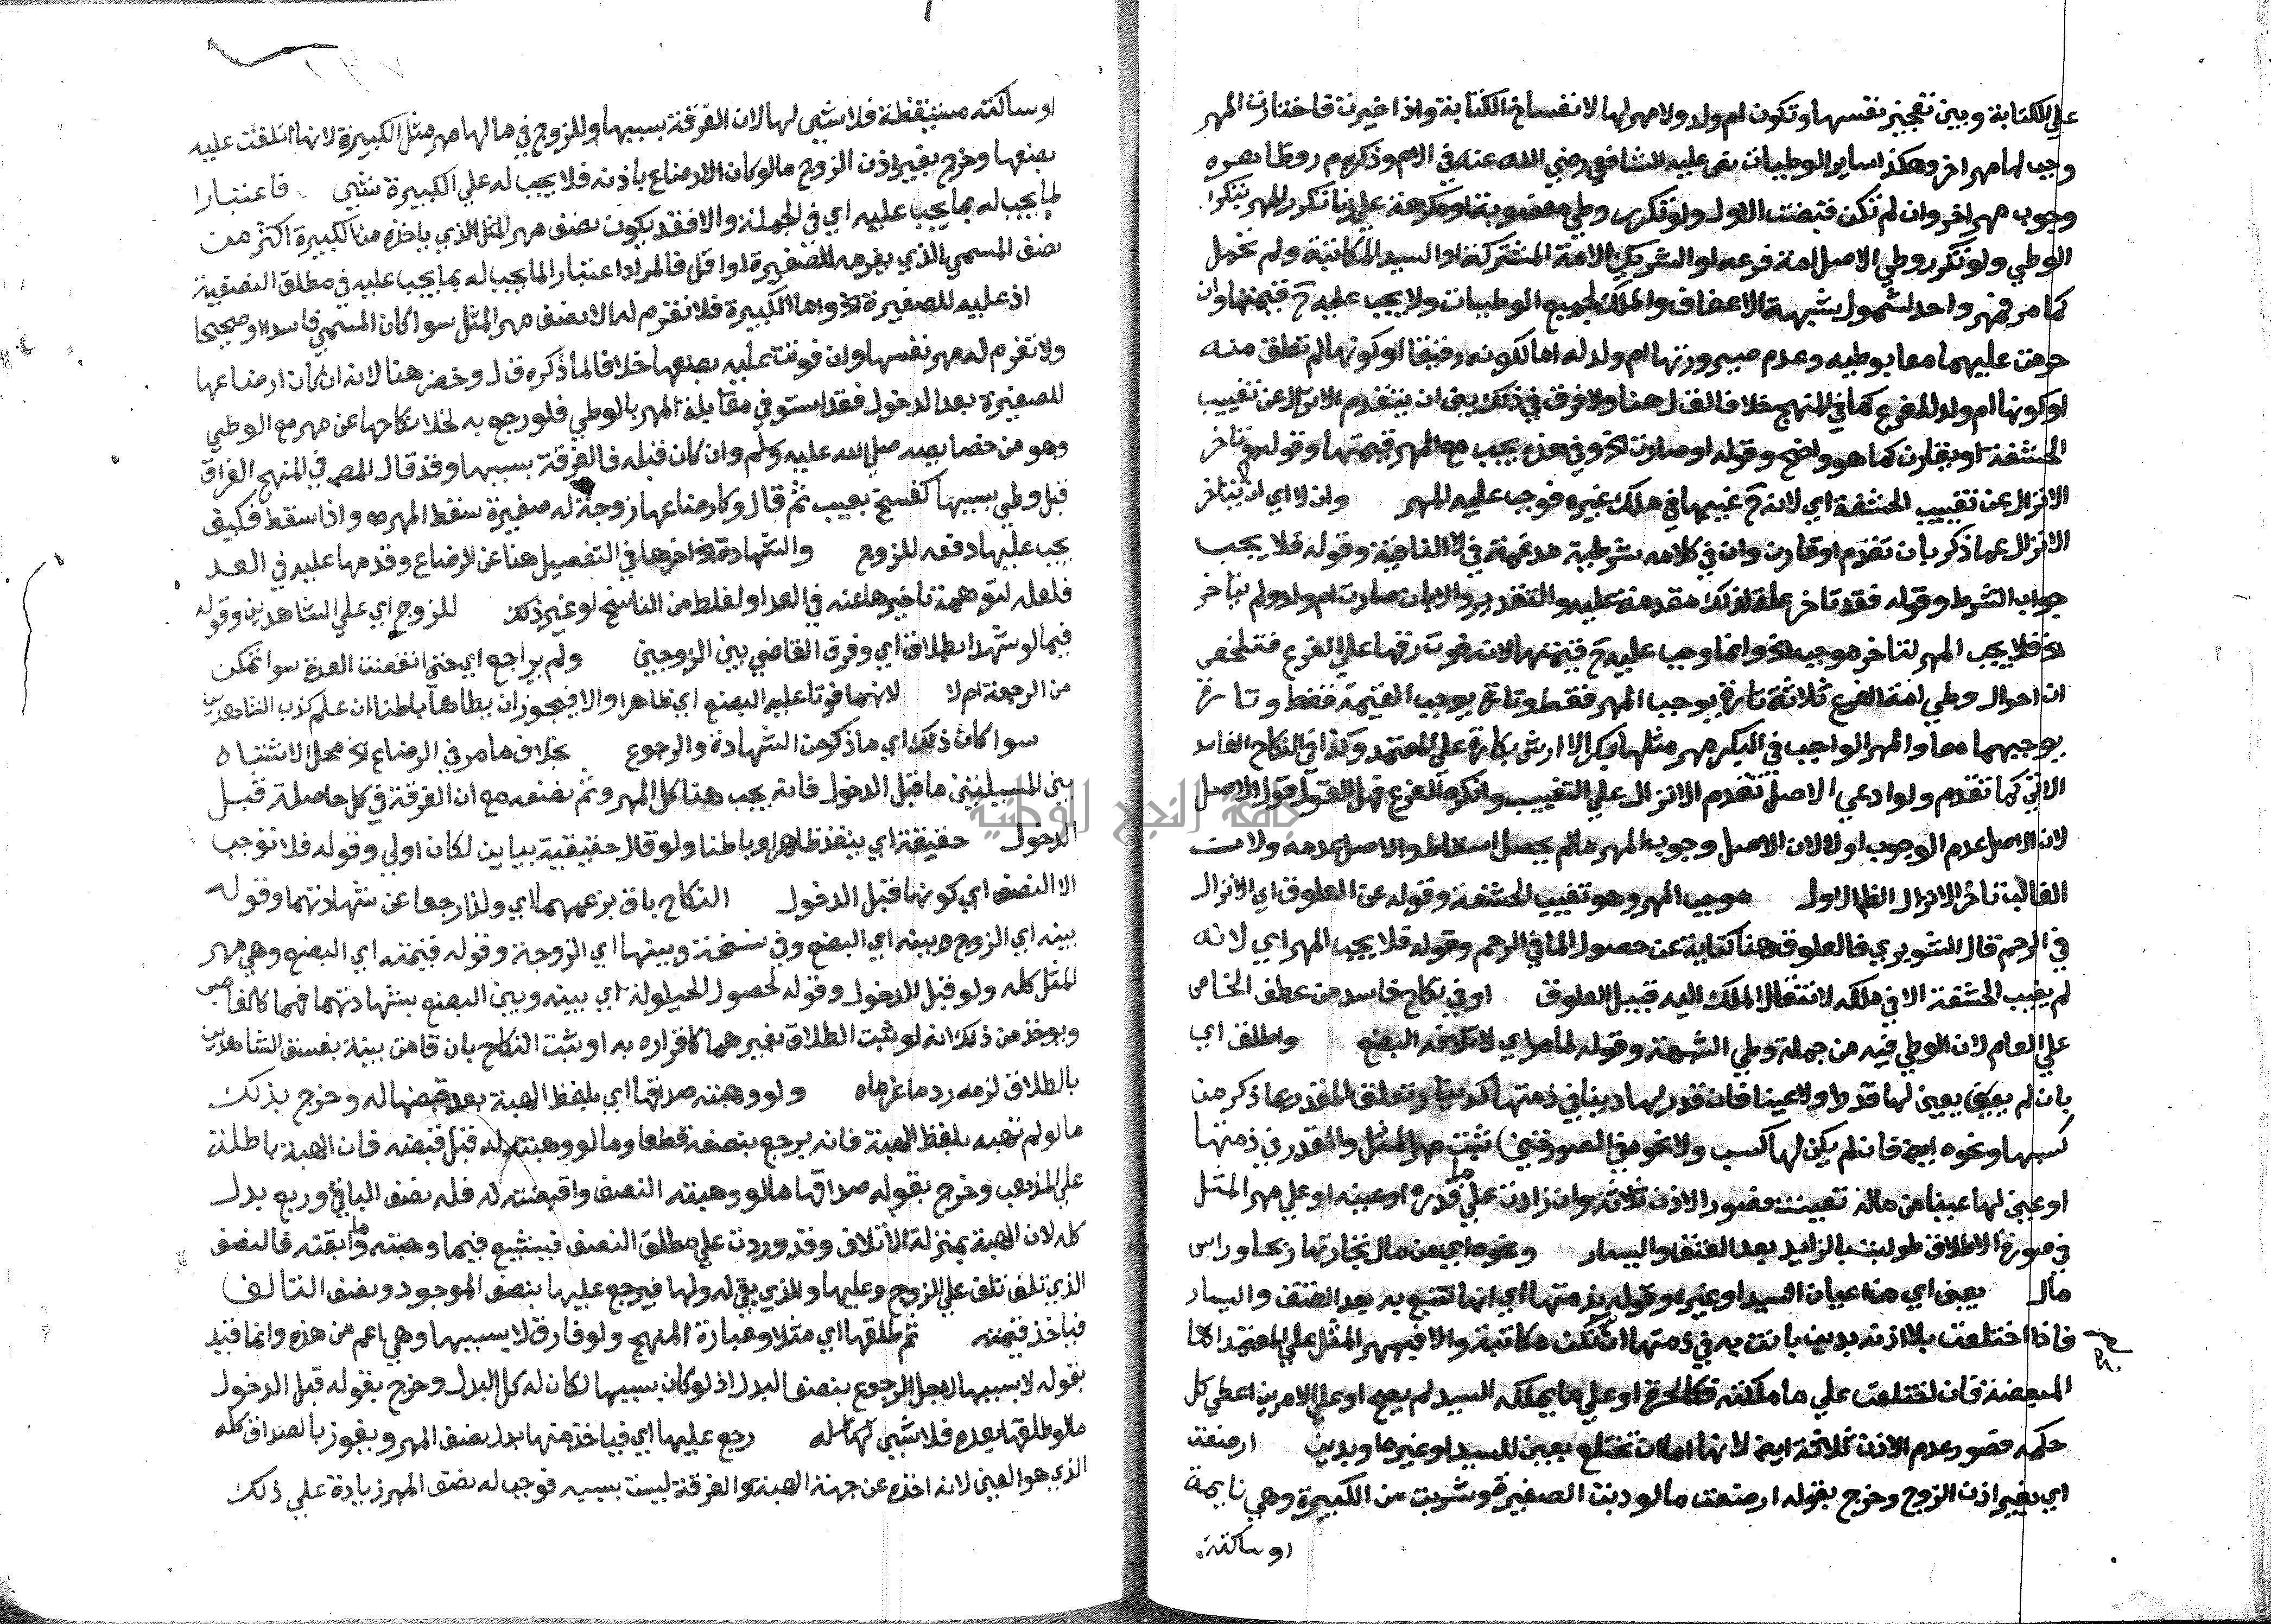 علي الكتابة وبين تعجيز نفسها وتكون ام ولد ولا مهر لها لانفساخ الكتابة واذا خيرت فاختارت المهر
وجب لها مهر اخر وهكذا ساير الوطيات نص عليه الشافعي رضي الله عنه في الام وذكره م ر وظاهره
وجوب مهر اخر وان لم تكن قبضت الاول ولو تكرر وطي مغصوبة او مكرهة علي زنا تكرر المهر بتكرر
الوطي ولو تكرر وطي الاصل امة فرعه او الشريك الامة المشتركة او السيد المكاتبة ولم تحمل
كما مر فمهر واحد لشمول شبهة الاعفاف والملك لجميع الوطيات ولا يجب عليه ح قيمتها وان
حرمت عليهما معا بوطيه وعدم صيرورتها ام ولد له اما لكونه رقيقا او كونها لم تعلق منه
او كونها ام ولد للفرع كما في المنهج خلافا لقل هنا ولا فرق في ذلك بين ان يتقدم الانزال عن تغييب
الحشفة او يقارن كما هو واضح وقوله او صارت الخ وفي هذه يجب مع المهر قيمتها وقوله وتاخر
الانزال عن تغييب الحشفة اي لانه ح غيبها في ملك غيره فوجب عليه المهر وان لا اي ان يتاخر
الانزال عما ذكر بان تقدم او قارن وان في كلامه شرطية مدغمة في لا النافية وقوله فلا يجب
جواب الشرط وقوله فقد تاخر علة لذلك مقدمة عليه والتقدير والا بان صارت ام ولد ولم يتاخر
الخ فلا يجب المهر لتاخر موجبه الخ وانما وجب عليه ح قيمتها لانه فوت رقها علي الفرع فتلخص
ان احوال وطي امة الفرع ثلاثة تارة يوجب المهر فقط وتارة يوجب القيمة فقط وتارة
يوجبهما معا والمهر الواجب في البكر مهر مثلها بكرا لا ارش بكارة علي المعتمد وكذا في النكاح الفاسد
الاتي كما تقدم ولو ادعي الاصل تقدم الانزال علي التغييب وانكره الفرع فهل القول قول الاصل
لان الاصل عدم الوجوب او لا لان الاصل وجوب المهر ما لم يحصل اسقاط والاصل عدمه ولان
الغالب تاخر الانزال الظ الاول موجب المهر وهو تغييب الحشفة وقوله عن العلوق اي الانزال
في الرحم قال الشوبري فالعلوق هنا كناية عن حصول الما في الرحم وقوله فلا يجب المهر اي لانه
لم يغيب الحشفة الا في ملكه لانتقال الملك اليه قبيل العلوق او في نكاح فاسد من عطف الخاص
علي العام لان الوطي فيه من جملة وطي الشبهة وقوله لما مر اي لاتلافه البضع واطلق اي
بان لم يعين لها قدرا ولا عينا فان قدر لها دينا في ذمتها كدينار تعلق المقدر بما ذكر من
كسبها ونحوه ايضا فان لم يكن لها كسب ولا نحوه في الصورتين ثبت مهر المثل والمقدر في ذمتها
او عين لها عينا من ماله تعينت فصور الاذن ثلاثة وان زادت علي ما قدره او عينه او علي مهر المثل
في صورة الاطلاق طولبت بالزايد بعد العتق واليسار ونحوه اي من مال تجارتها ربحا وراس
مال بعين اي من اعيان السيد او غيره وقوله بذمتها اي انها تتبع به بعد العتق واليسار
فاذا اختلعت بلا اذنه بدين بانت به في ذمتها ان لم تكن مكاتبة والا فبمهر المثل علي المعتمد اما
المبعضة فان اختلعت علي ما ملكته فكالحرة او علي ما يملكه السيد لم يصح او علي الامرين اعطي كل
حكمه فصور عدم الاذن ثلاثة ايضا لانها اما ان تختلع بعين للسيد او غيرها وبدين ارضعت
اي بغير اذن الزوج وخرج بقوله ارضعت ما لو دبت الصغيرة وشربت من الكبيرة وهي نايمة
او ساكتة
او ساكتة مستيقظة فلا شي لها لان الفرقة بسببها وللزوج في مالها مهر مثل الكبيرة لانها اتلفت عليه
بضعها وخرج بغير اذن الزوج ما لو كان الارضاع باذنه فلا يجب له علي الكبيرة شي فاعتبارا
لما يجب له بما يجب عليه اي في الجملة والا فقد يكون نصف مهر المثل الذي ياخذه من الكبيرة اكثر من
نصف المسمي الذي يغرمه للصغيرة او اقل فالمراد اعتبار ما يجب له بما يجب عليه في مطلق النصفية
اذ عليه للصغيرة الخ واما الكبيرة فلا تغرم له الا نصف مهر المثل سوا كان المسمي فاسدا او صحيحا
ولا تغرم له مهر نفسها وان فوتت عليه بضعها خلافا لما ذكره ق ل وخضر هنا لانه ان كان ارضاعها
للصغيرة بعد الدخول فقد استوفي مقابلة المهر بالوطي فلو رجع به لخلا نكاحها عن مهر مع الوطي
وهو من خصايصه صلي الله عليه وسلم وان كان قبله فالفرقة بسببها وقد قال المص في المنهج الفراق
قبل وطي بسببها كفسخ بعيب ثم قال وكارضاعها زوجة له صغيرة سقط المهر اه واذا سقط فكيف
يجب عليها دفعه للزوج والشهادة الخ اخرها في التفصيل هنا عن الرضاع وقدمها عليه في العد
فلعله لتوهمه تاخيرها عنه في العد او لغلط من الناسخ او غير ذلك للزوج اي علي الشاهدين وقوله
فيما لو شهدا بطلاق اي وفرق القاضي بين الزوجين ولم يراجع اي حتي انقضت العدة سوا تمكن
من الرجعة ام لا لانهما فوتا عليه البضع اي ظاهرا والا فيجوز ان يطاها باطنا ان علم كذب الشاهدين
سوا كان ذلك اي ما ذكر من الشهادة والرجوع بخلاف ما مر في الرضاع الخ محل الاشتباه
بين المسيلتين ما قبل الدخول فانه يجب هنا كل المهر وثم نصفه مع ان الفرقة في كل حاصلة قبل
الدخول حقيقة اي ينفذ ظاهرا وباطنا ولو قال حقيقية بيايين لكان اولي وقوله فلا توجب
الا النصف اي كونها قبل الدخول النكاح باق بزعمهما اي ولذا رجعا عن شهادتهما وقوله
بينه اي الزوج وبينه اي البضع وفي نسخة وبينها اي الزوجة وقوله قيمته اي البضع وهي مهر
المثل كله ولو قبل الدخول وقوله لحصول الحيلولة اي بينه وبين البضع بشهادتهما فهما كالغاصبين
ويوخذ من ذلك انه لو ثبت الطلاق بغيرهما كاقراره به او ثبت النكاح بان قامت بينة بفسق الشاهدين
بالطلاق لزمه رد ما غرماه ولو وهبته صداقها اي بلفظ الهبة بعد قبضها له وخرج بذلك
ما لو لم تهبه بلفظ الهبة فانه يرجع بنصفه قطعا وما لو وهبته له قبل قبضه فان الهبة باطلة
علي المذهب وخرج بقوله صداقها ما لو وهبته النصف واقبضته له فله نصف الباقي وربع بدل
كله لان الهبة بمنزلة الاتلاف وقد وردت علي مطلق النصف فيشيع فيما وهبته وما ابقته فالنصف
الذي تلف تلف علي الزوج وعليها والذي بقي له ولها فيرجع عليها بنصف الموجود ونصف التالف
فياخذ قيمته ثم طلقها اي مثلا وعبارة المنهج ولو فارق لا بسببها وهي اعم من هذه وانما قيد
بقوله لا بسببها لاجل الرجوع بنصف البدل اذ لو كان بسببها لكان له كل البدل وخرج بقوله قبل الدخول
ما لو طلقها بعده فلا شي له رجع عليها اي فياخذ منها بدل نصف المهر ويفوز بالصداق كله
الذي هو العين لانه اخذه عن جهة الهبة والفرقة ليست بسببه فوجب له نصف المهر زيادة علي ذلك
جامعة النجاح الوطنية